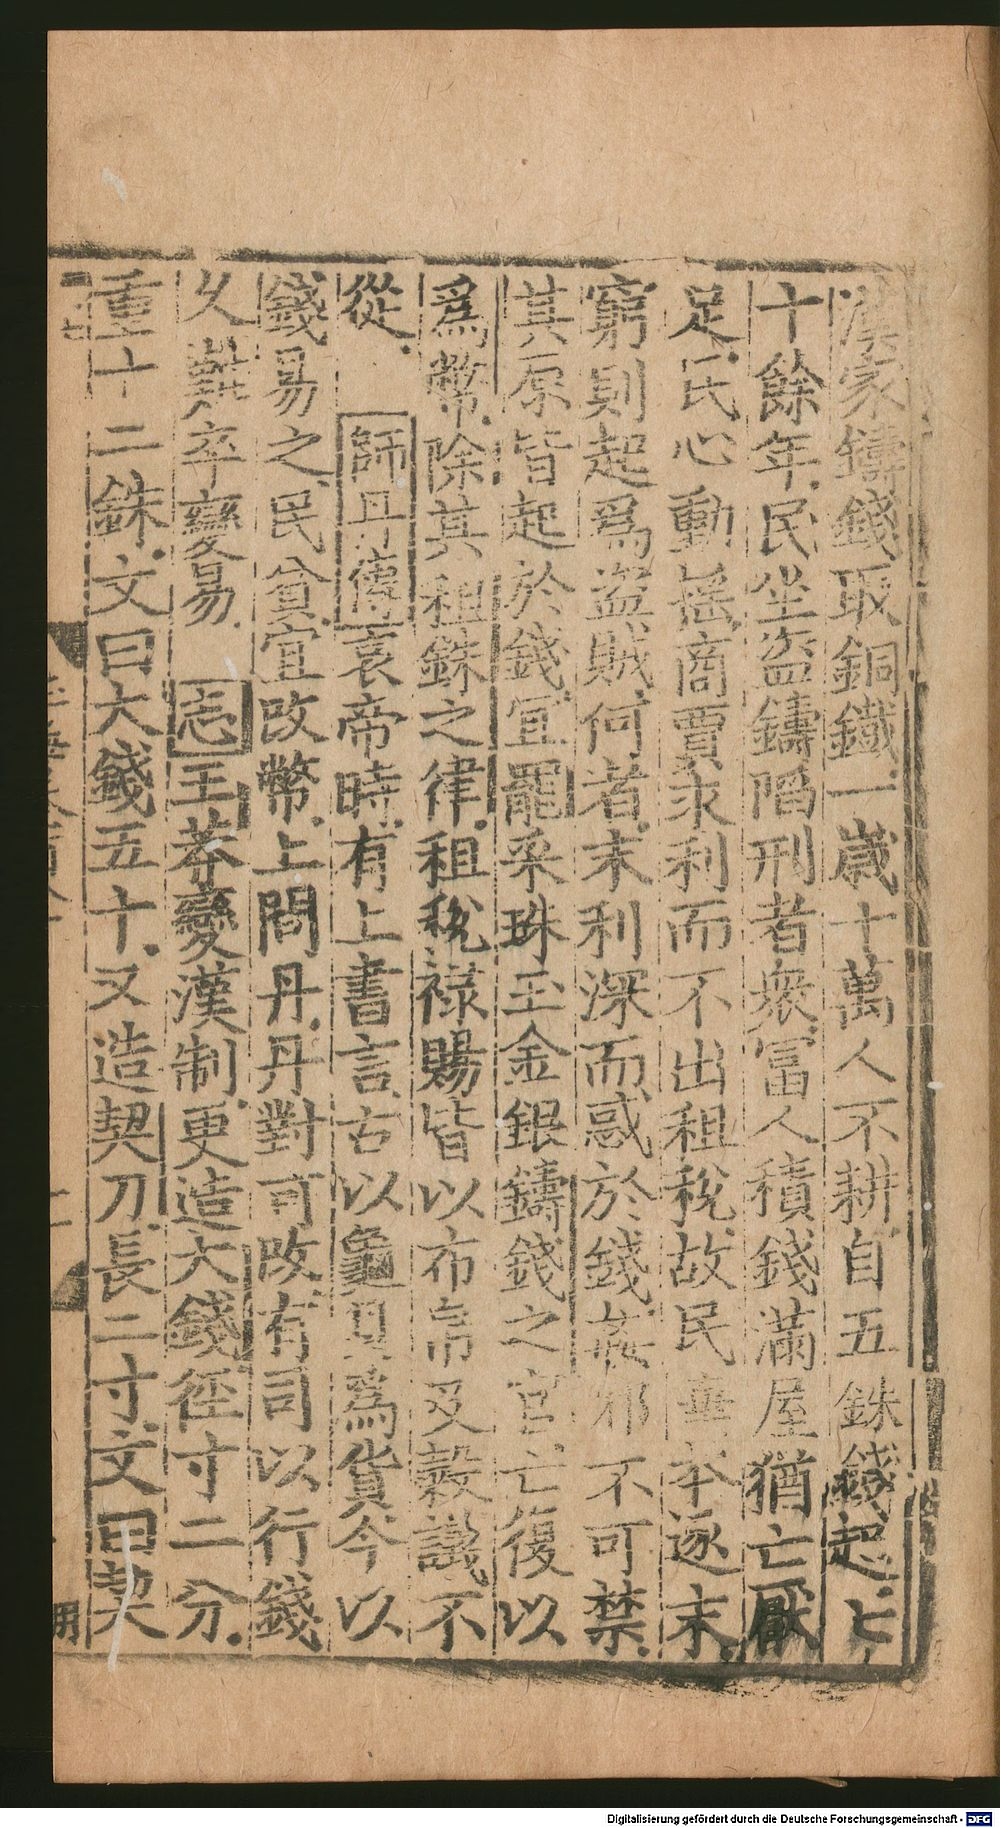 漢家鑄錢取銅鐵一歲十萬人不耕自五銖錢起七
十餘年民坐盜鑄陷刑者衆富人積錢滿屋猶亡厭
足民心動搖商賈求利而不出租稅故民棄本逐末
窮則起爲盜賊何者末利深而惑於錢姦邪不可禁
其原皆起於錢宜罷采珠玉金銀鑄錢之官亡復以
爲幣除其租銖之律租稅祿賜皆以布帛及穀議不
從師丹傳哀帝時有上書言古以龜貝爲貨今以
錢易之民貧宜改幣上問丹丹對可改有司以行錢
久難卒變易志王莽變漢制更造大錢徑寸二分
重十二銖文曰大錢五十又造契刀長二寸文曰契
Digitalisierung gefördert durch die Deutsche Forschungsgemeinschaft - DFG